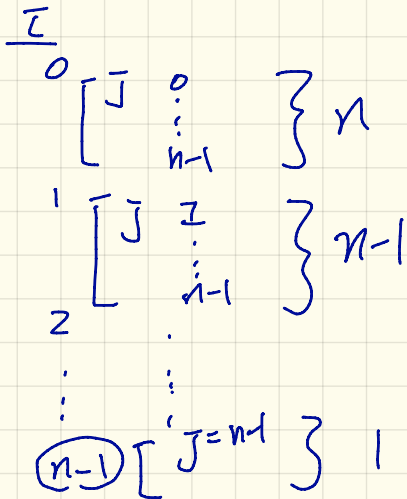 I
0 [ J 0 } n
⋮
n-1
1 [ J 1 } n-1
⋮
n-1
2 ⋮
⋮ ⋮
n-1 [ J=n-1 } 1